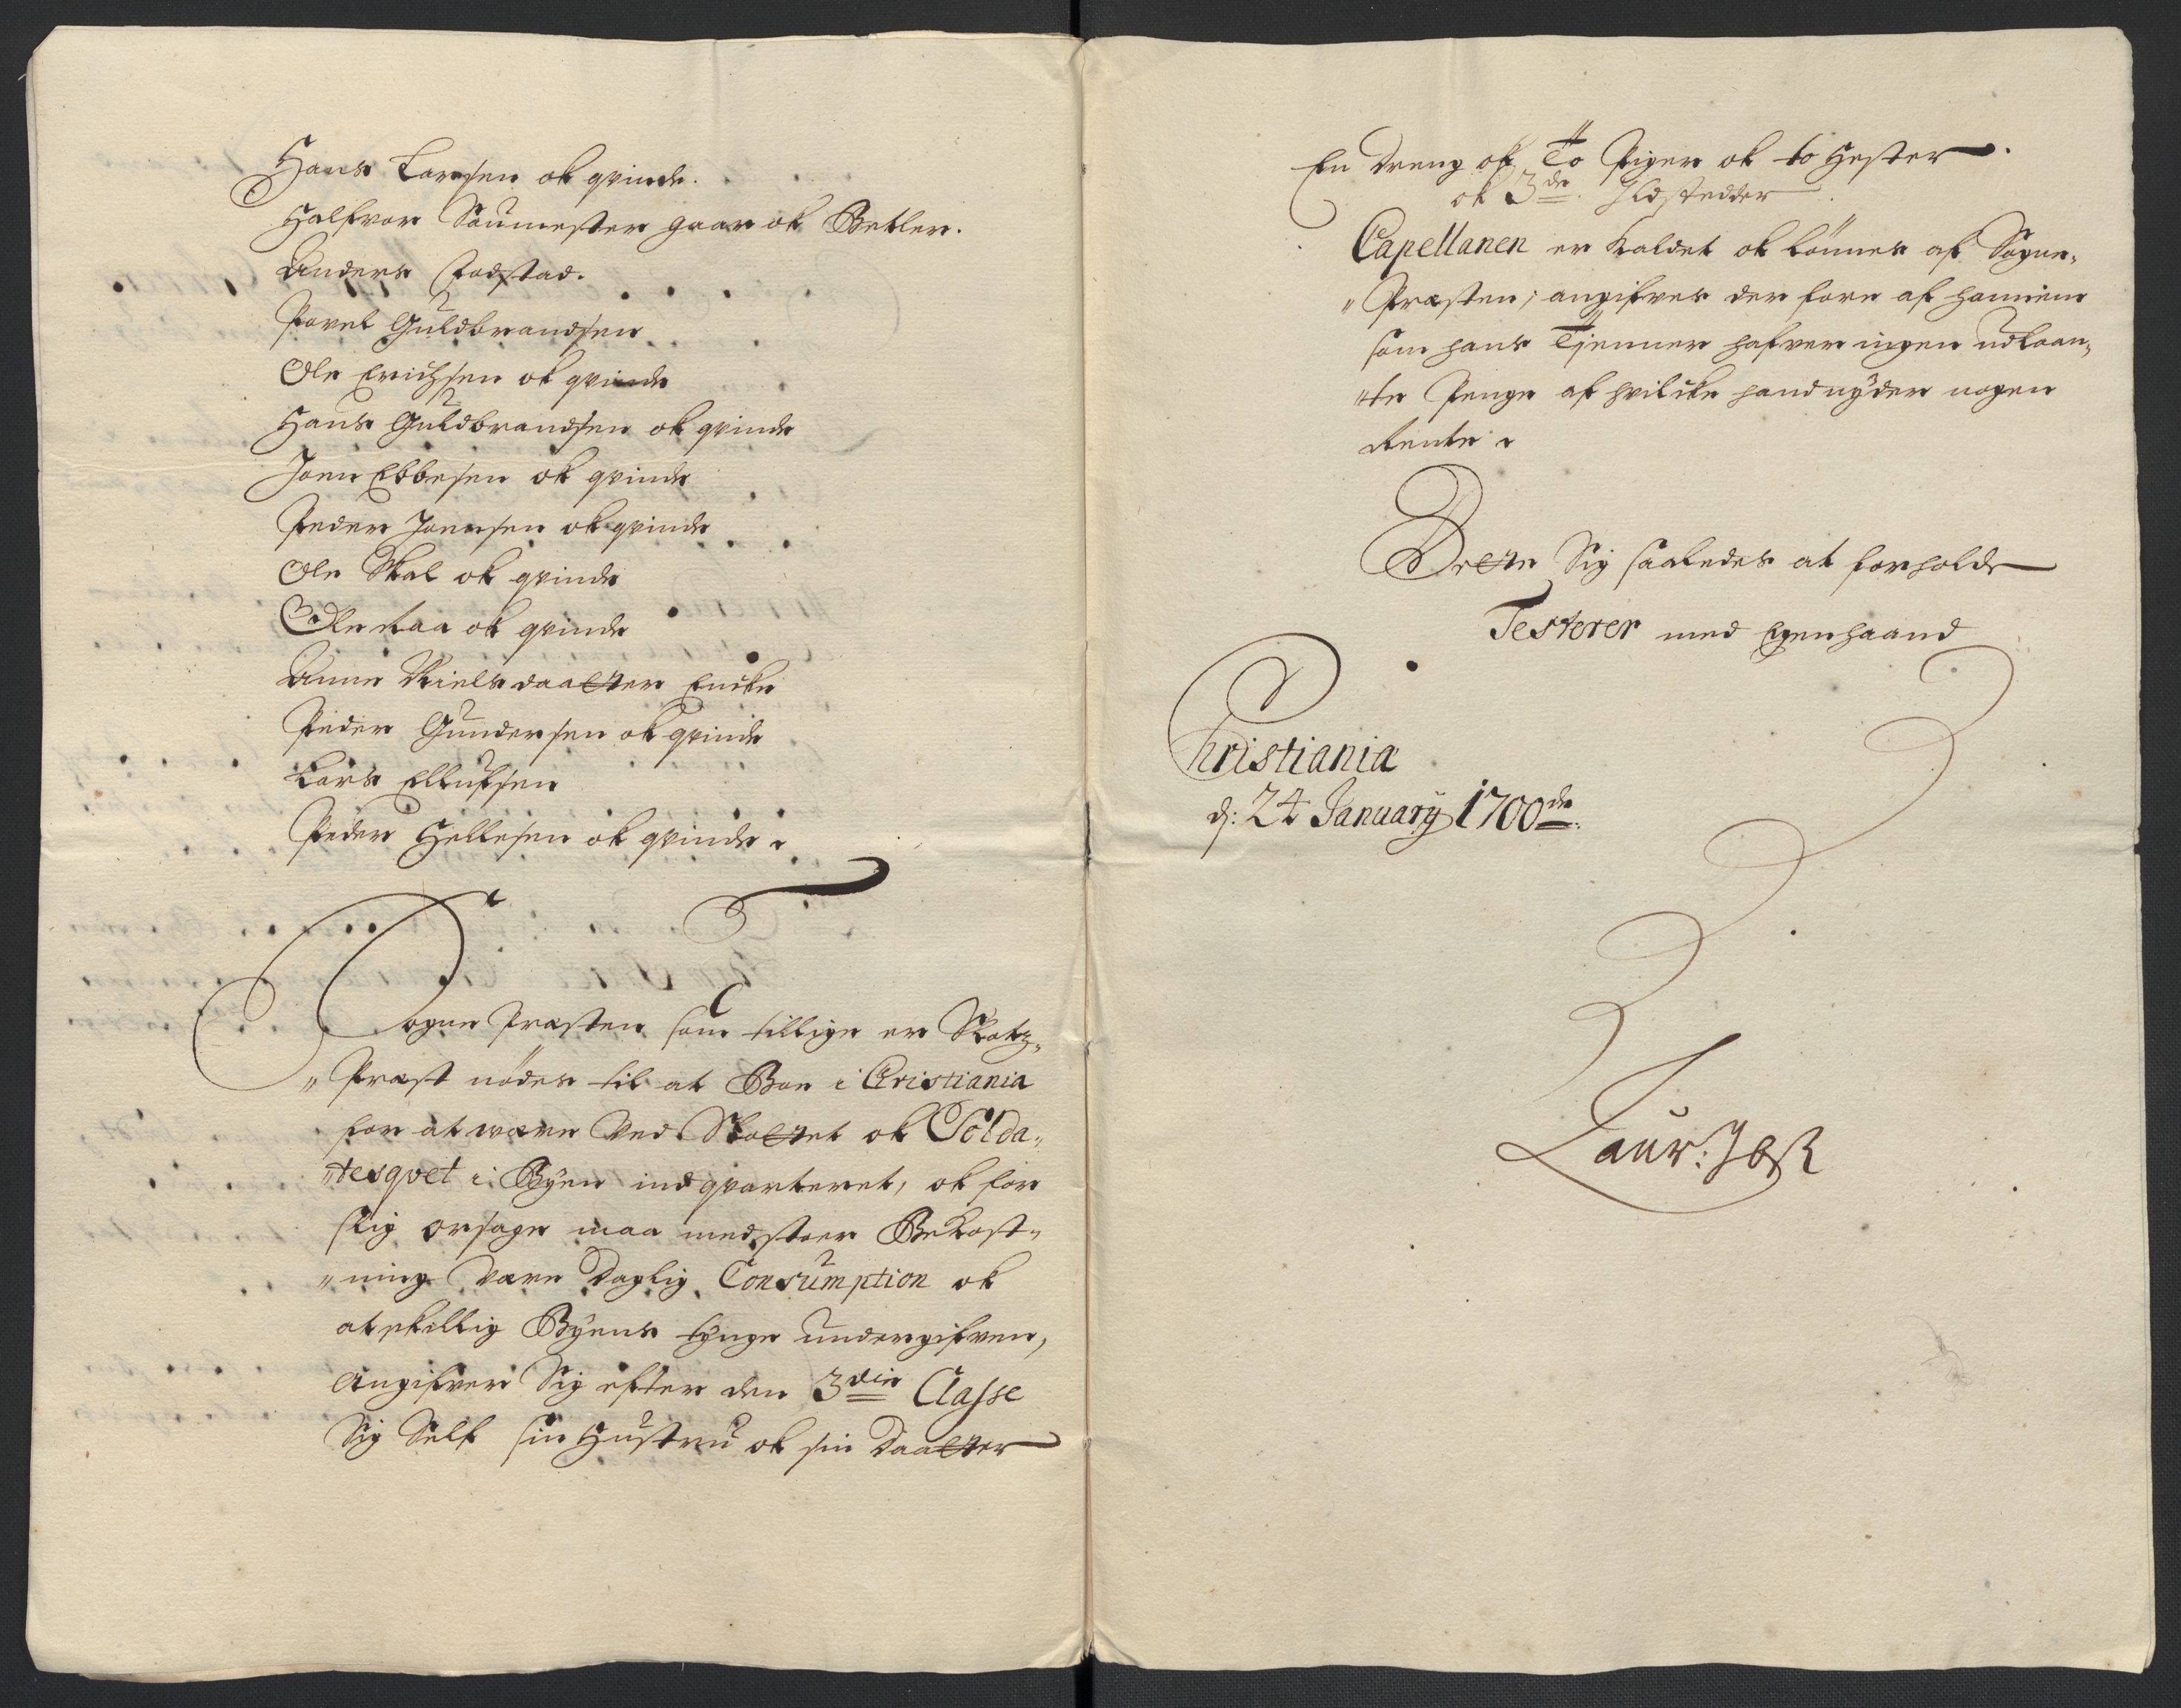 Hans Larsen ok qvinde.
Halfvor Saumester gaar ok Betler.
Anders Fodstad.
Povel Guldbrandsen
Ole Erichsen ok qvinde
Hans Guldbrandsen ok qvinde
Joen Ebbesen ok qvinde
Peder Joensen ok qvinde
Ole Skal ok qvinde
Ole Raa ok qvinde
Anne Nielsdaatter Encke
Peder Gundersen ok qvinde
Lars Ellufsen
Peder Hellesen ok qvinde
Sogne Præsten som tillige er Slotz-
Præst nødes til at Boe i Christiania
for at være ved Slottet ok Solda-
tesqvet i Byen indqvarteret, ok for
slig orsage maa med stoer Bekost-
ning være daglig Consumption ok
atskillig Byens tynge undergifven,
Angifver Sig efter den 3die Classe
Sig Self sin Hustru ok sin Daatter
En dreng ok To Piger ok to Hester
ok 3de Ildstedder
Capellanen er kaldet ok lønnes af Sogne-
Præsten; angifves der fore af hannem
som hans Tjenner hafver ingen udlaan-
te Penge af hvilcke hand nyder nogen
Rente
Dette Sig saaledes at forholde
Testerer med Egenhaand
Christiania
d: 24 January 1700de.
Laur: Jbs